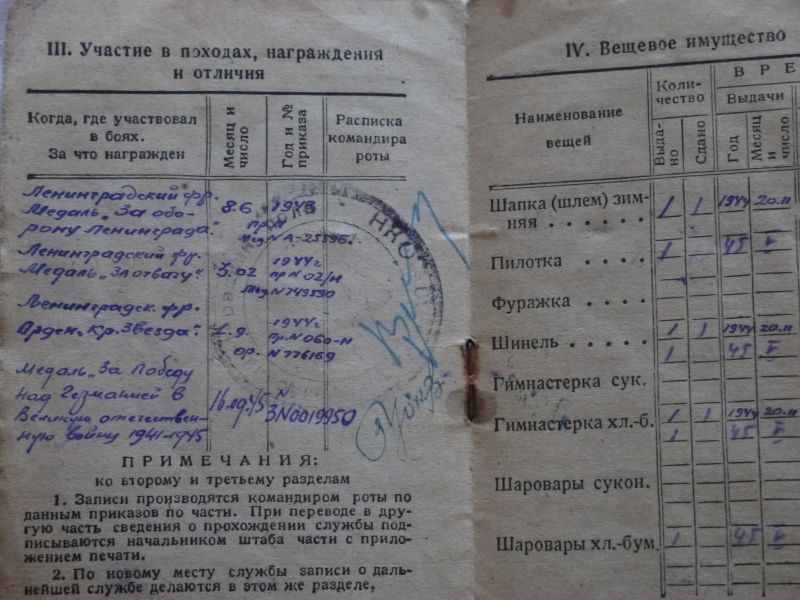 III. Участие в походах, награждения
и отличия
Когда, где участвовал
в боях.
За что награжден
Месяц и
число
Год и №
приказа
Расписка
командира
роты
Ленинградский фр.
Медаль „За обо-
рону Ленинграда".
8.6
1943
Пр. N
Мед. N А-25596
Ленинградский фр.
Медаль „За отвагу".
3.02
1944г
пр N 02/Н
Мед N 749590
Ленинградск. фр.
Орден „Кр. Звезда".
1.9.
1944г
Пр. N 060-Н
Ор. N 776169
Медаль „За Победу
над Германией в
Великую отечествен-
ную войну 1941-1945
N
3N0019950
НКО
ПРИМЕЧАНИЯ:
ко второму и третьему разделам
1. Записи производятся командиром роты по
данным приказов по части. При переводе в дру-
гую часть сведения о прохождении службы под-
писываются начальником штаба части с прило-
жением печати.
2. По новому месту службы записи о даль-
нейшей службе делаются в этом же разделе.
IV. Вещевое имущество
Наименование
вещей
Коли-
чество
ВРЕ
Выдачи
Выда-
но
Сдано
Год
Месяц
и
Шапка (шлем) зим-
няя . . . . . . 1 1 1944 20.II
Пилотка . . . . 1 45 V
Фуражка . . . .
Шинель . . . . . 1 1 1944 20.II
1 45 V
Гимнастерка сук.
Гимнастерка хл.-б. 1 1 1944 20.II
1 45 V
Шаровары сукон.
Шаровары хл.-бум. 1 45 V